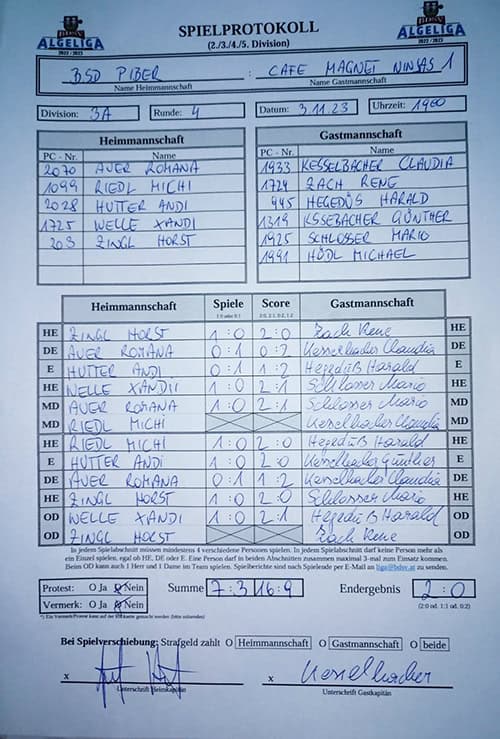 BDSV
ALGELIGA
2022 / 2023
SPIELPROTOKOLL
(2./3./4./5. Division)
BDSV
ALGELIGA
2022 / 2023
BSD PIBER : CAFE MAGNET NINJAS 1
Name Heimmannschaft Name Gastmannschaft
Division: 3A Runde: 4 Datum: 3.11.23 Uhrzeit: 1900
Heimmannschaft Gastmannschaft
PC - Nr. Name PC - Nr. Name
2070 AUER ROMANA 1933 KESSELBACHER CLAUDIA
1099 RIEDL MICHI 1724 ZACH RENE
2028 HUTTER ANDI 445 HEGEDÜS HARALD
1725 WELLE XANDI 1319 KSSEBACHER GÜNTHER
203 ZINGL HORST 1925 SCHLOSSER MARIO
1991 HÖDL MICHAEL
Heimmannschaft Spiele Score Gastmannschaft
1:0 oder 0:1 2:0, 2:1, 0:2, 1:2
HE ZINGL HORST 1:0 2:0 Zach Rene HE
DE AUER ROMANA 0:1 0:2 Kesselbacher Claudia DE
E HUTTER ANDI 0:1 1:2 Hegedüß Harald E
HE WELLE XANDI 1:0 2:1 Schlosser Mario HE
MD AUER ROMANA 1:0 2:1 Schlosser Mario MD
MD RIEDL MICHI Kesselbacher Claudia MD
HE RIEDL MICHI 1:0 2:0 Hegedüß Harald HE
E HUTTER ANDI 1:0 2:0 Kesselbacher Günther E
DE AUER ROMANA 0:1 1:2 Kesselbacher Claudia DE
HE ZINGL HORST 1:0 2:0 Schlosser Mario HE
OD WELLE XANDI 1:0 2:1 Hegedüß Harald OD
OD ZINGL HORST Zach Rene OD
In jedem Spielabschnitt müssen mindestens 4 verschiedene Personen spielen. In jedem Spielabschnitt darf keine Person mehr als
ein Einzel spielen, egal ob HE, DE oder E. Eine Person darf in beiden Abschnitten zusammen maximal 3-mal zum Einsatz kommen.
Beim OD kann auch 1 Herr und 1 Dame im Team spielen. Spielberichte sind nach Spielende per E-Mail an liga@bdsv.at zu senden.
Protest: O Ja O Nein Summe 7:3 16:9 Endergebnis 2:0
Vermerk: O Ja O Nein (2:0 od. 1:1 od. 0:2)
*) Ein Vermerk/Protest kann auf der Rückseite gemacht werden (bitte ankreuzen)
Bei Spielverschiebung: Strafgeld zahlt O Heimmannschaft O Gastmannschaft O beide
x x Kesselbacher
Unterschrift Heimkapitän Unterschrift Gastkapitän